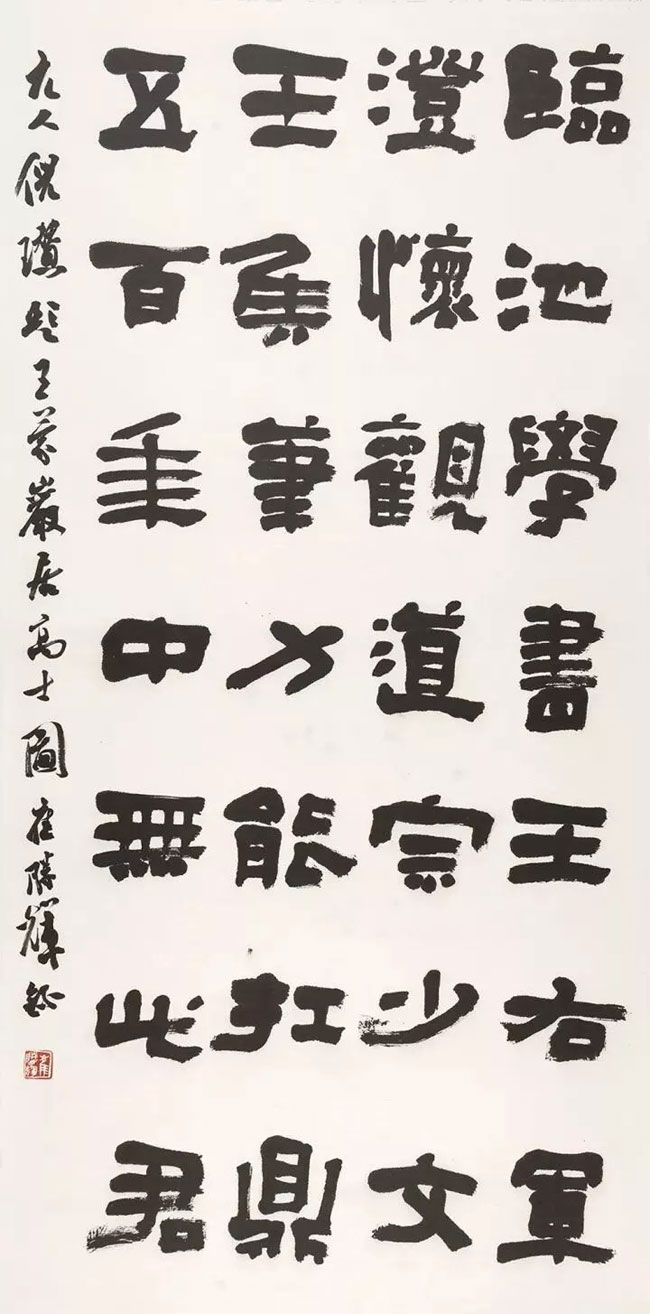 臨池學書王右軍
澄懷觀道宗少文
王矦筆力能扛鼎
五百年中無此君
元人倪瓚題王蒙巖居高士圖 崔勝輝錄